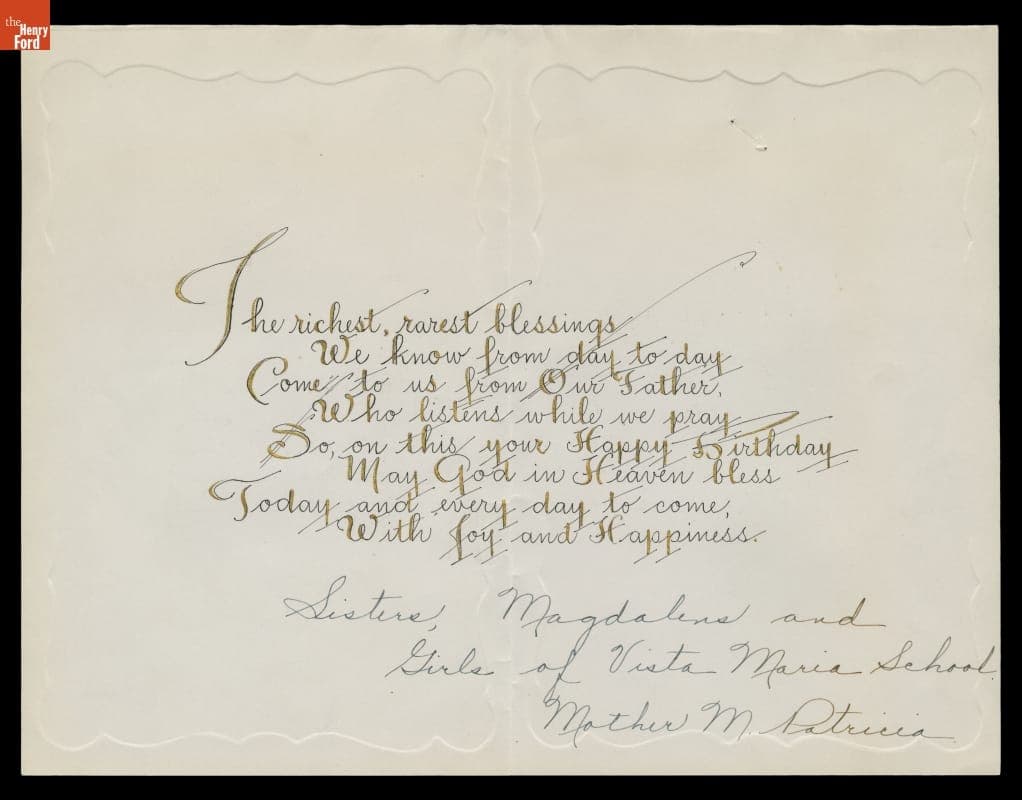 the
Henry
Ford
The richest, rarest blessings
We know from day to day
Come to us from Our Father,
Who listens while we pray
So, on this your Happy Birthday
May God in Heaven bless
Today and every day to come,
With Joy and Happiness.
Sisters, Magdalens and
Girls of Vista Maria School.
Mother M. Patricia